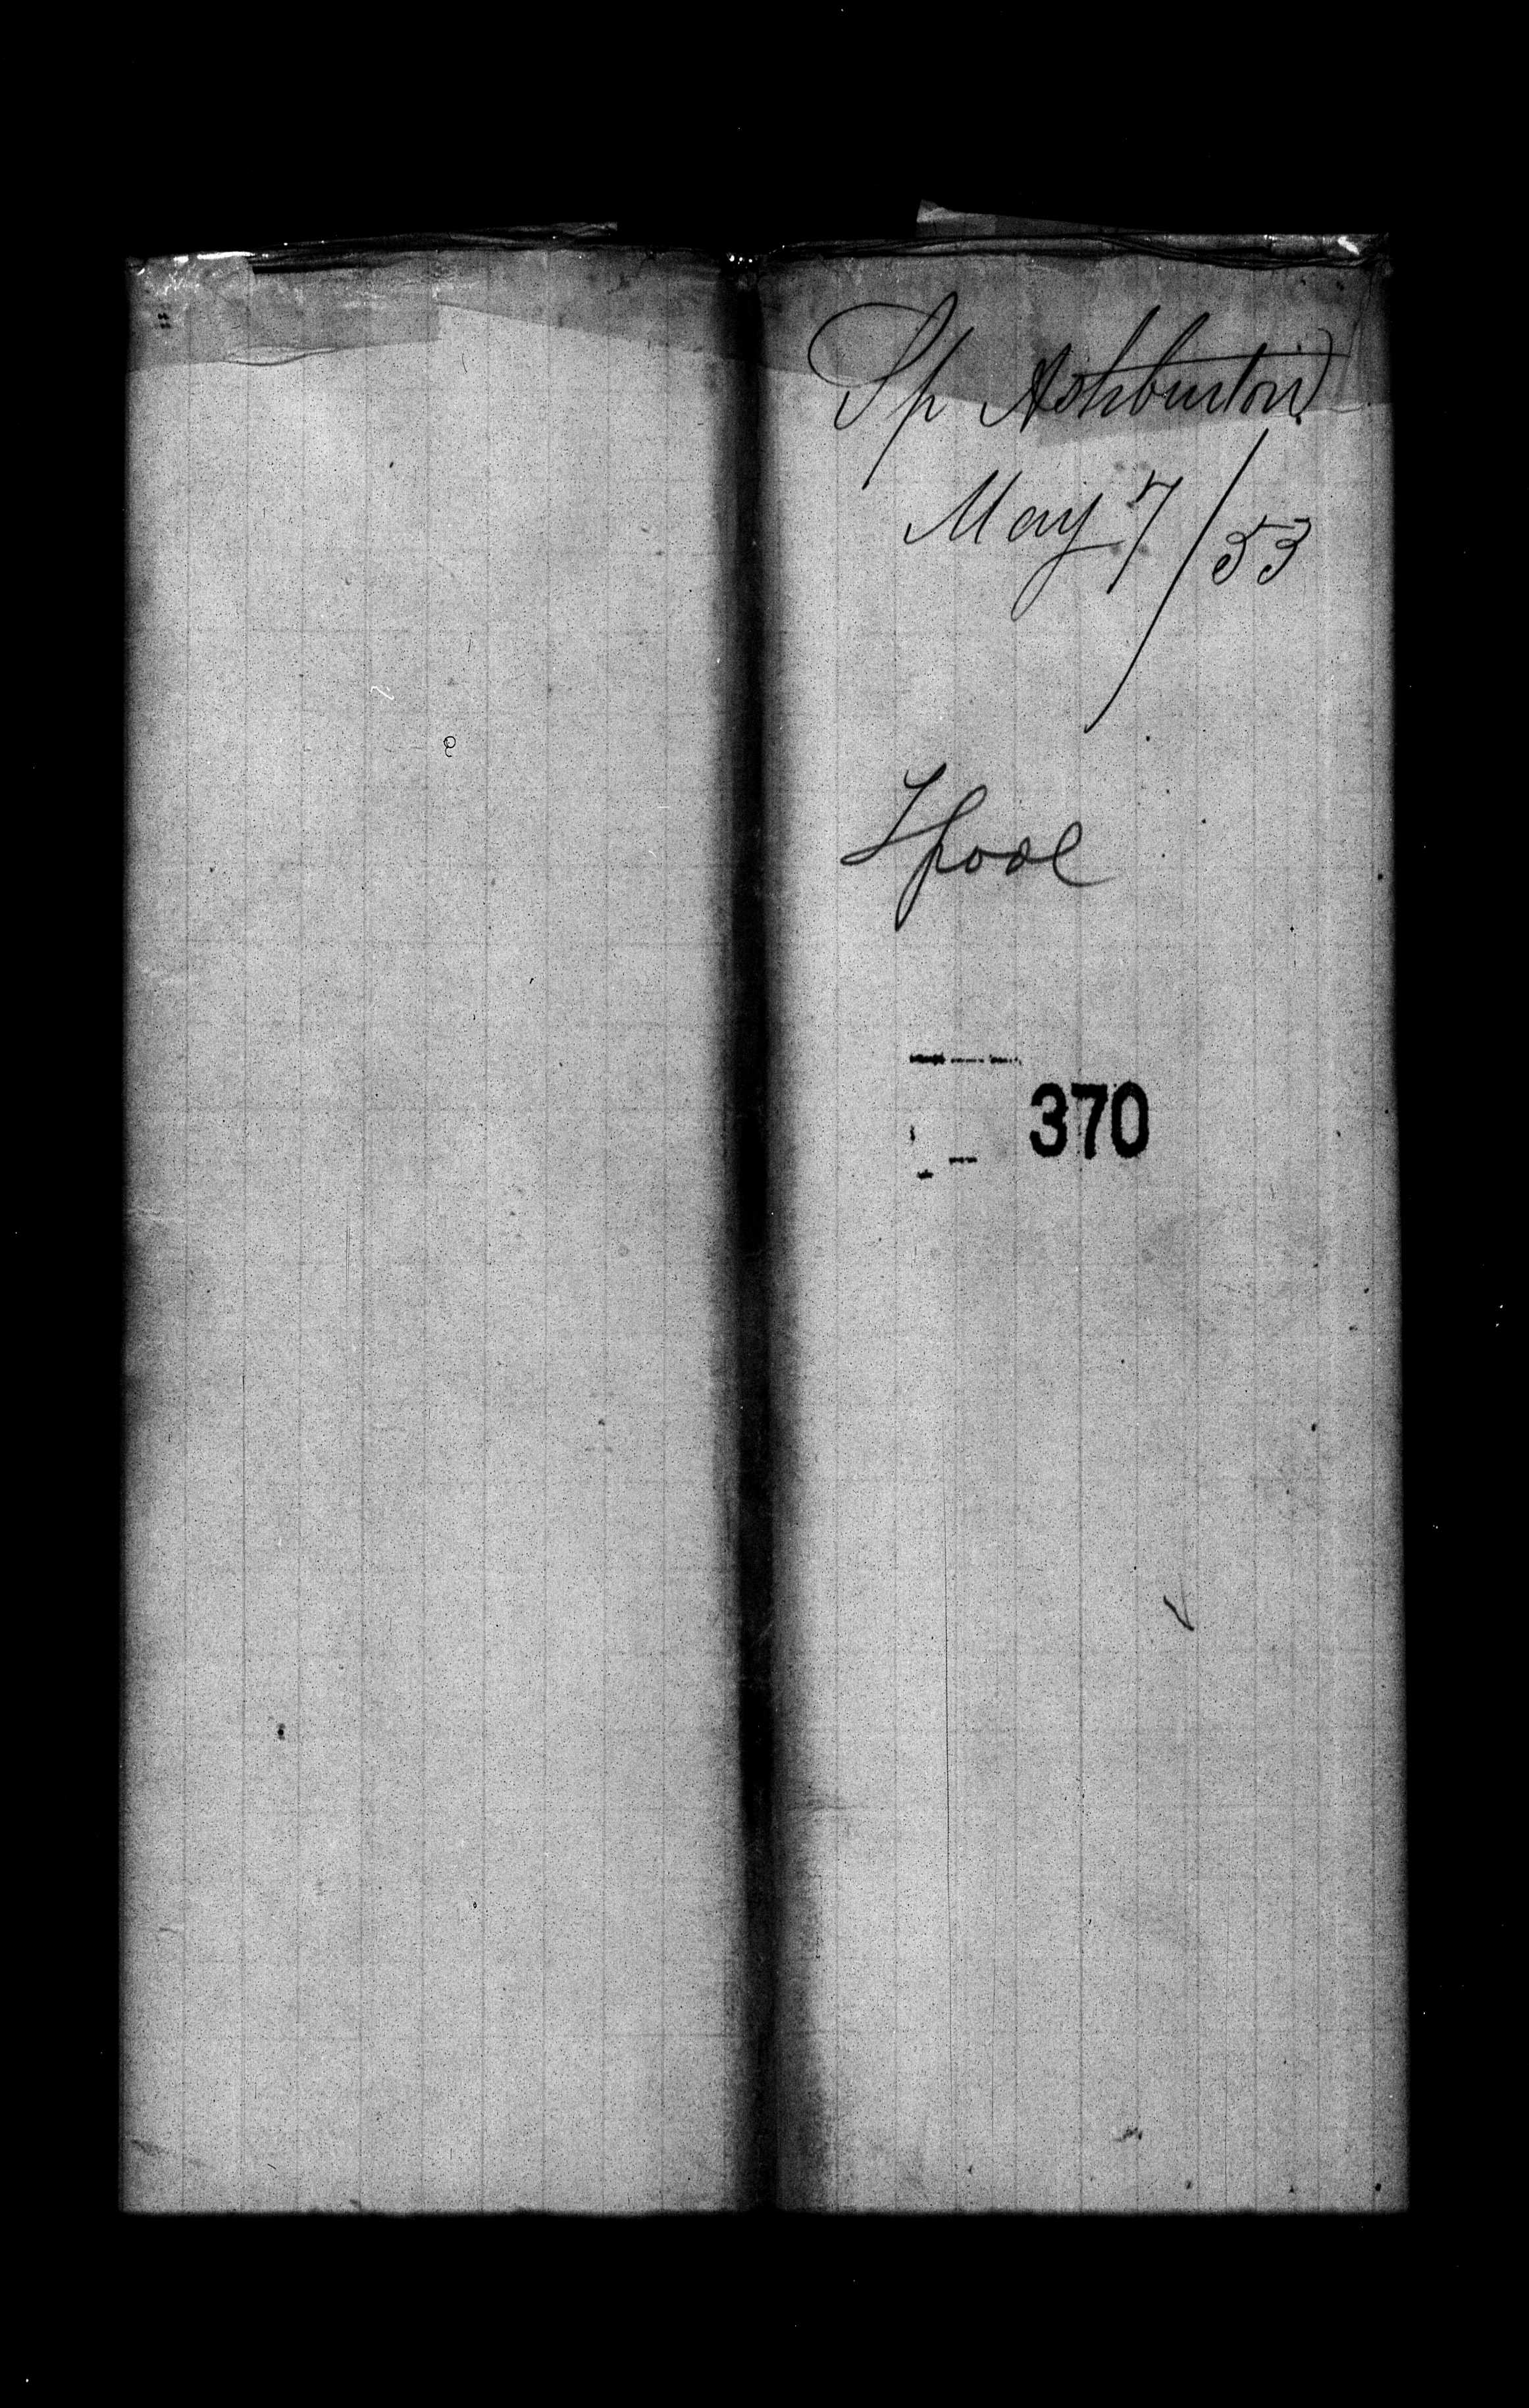 Sp Ashburton
May 7/53
Lpool
370